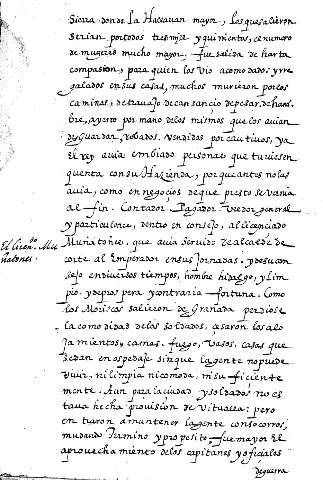 Sierra donde la Hacauan mayor, los que salieron
serian por todos tres mill y quinientos, el numero
de mugeres mucho mayor. fue salida de harta
compasion, para quien los vio acomodados y rre
galados en sus casas, muchos murieron por los
caminos, de trabajo de cansancio de pesar, de ham
bre, a yerro por mano de los mismos que los auian
de guardar, robados. Vendidos por cautiuos, ya
El rey auia embiado personas que tuuiesen
quenta con su Hazienda, porque antes no las
auia, como en negocios de que presto se veria
al fin. Contador, Pagador Veedor general
y particulares, dentro en consejo, al licenciado
Muñatones, que auia seruido de alcalde de
corte al Emperador en sus Jornadas. y de su con
sejo en diuersos tiempos, hombre hidalgo, y lim
pio. y de prospera y contraria fortuna. Como
los Moriscos salieron de Granada perdiose
la comodidad de los soldados, cesaron los alo
jamientos, camas. fuego, Vasos. cosas que
se dan en ospedaje sin que la gente no puede
viuir, ni limpia ni comoda, ni suficiente
mente. Aun para la ciudad y soldados no es
taua hecha prouision de Vitualla: pero
entraron a mantener la gente con socorros,
mudando termino y proposito. fue mayor El
aprouechamiento de los capitanes y oficiales
de guerra
El licendo. Mu
ñatones.